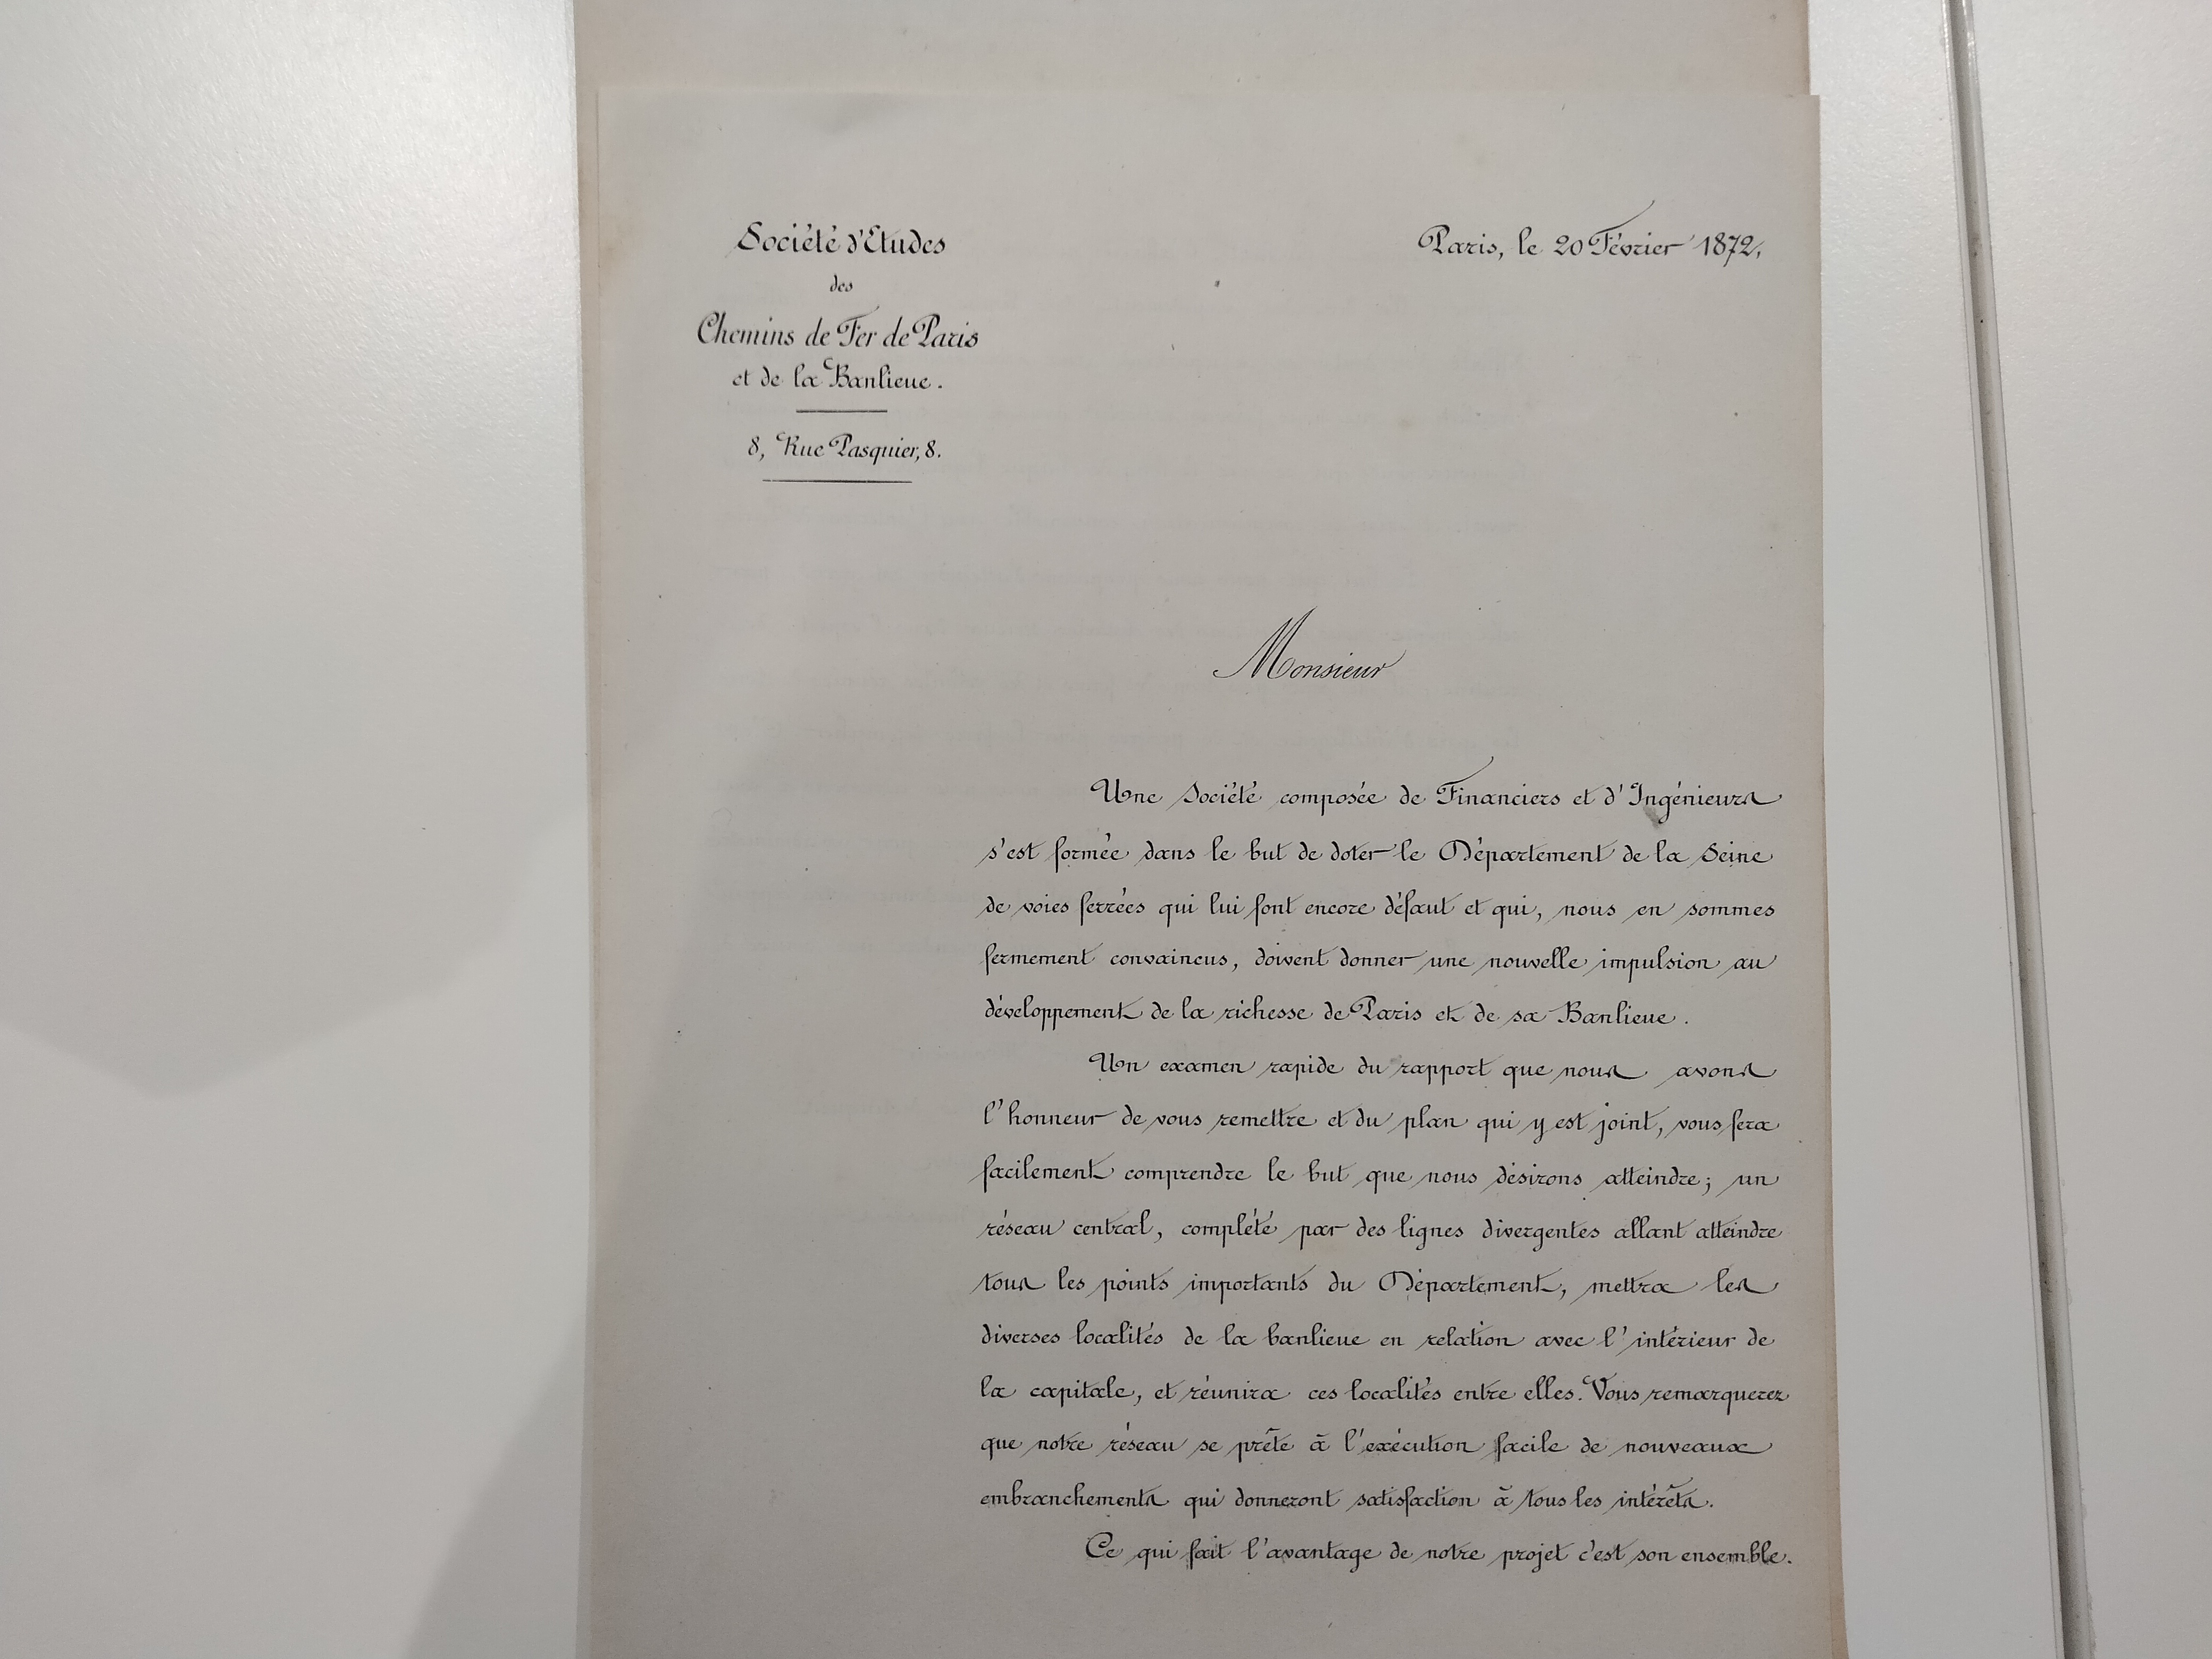 Société d'Etudes
des
Chemins de Fer de Paris
et de la Banlieue.
8, Rue Pasquier, 8.
Paris, le 20 Février 1872,
Monsieur
Une Société composée de Financiers et d'Ingénieurs
s'est formée dans le but de doter le Département de la Seine
de voies ferrées qui lui font encore défaut et qui, nous en sommes
fermement convaincus, doivent donner une nouvelle impulsion au
développement de la richesse de Paris et de sa Banlieue.
Un examen rapide du rapport que nous avons
l'honneur de vous remettre et du plan qui y est joint, vous fera
facilement comprendre le but que nous désirons atteindre; un
réseau central, complété par des lignes divergentes allant atteindre
tous les points importants du Département, mettra les
diverses localités de la banlieue en relation avec l'intérieur de
la capitale, et réunira ces localités entre elles. Vous remarquerez
que notre réseau se prête à l'exécution facile de nouveaux
embranchements qui donneront satisfaction à tous les intérêts.
Ce qui fait l'avantage de notre projet c'est son ensemble.